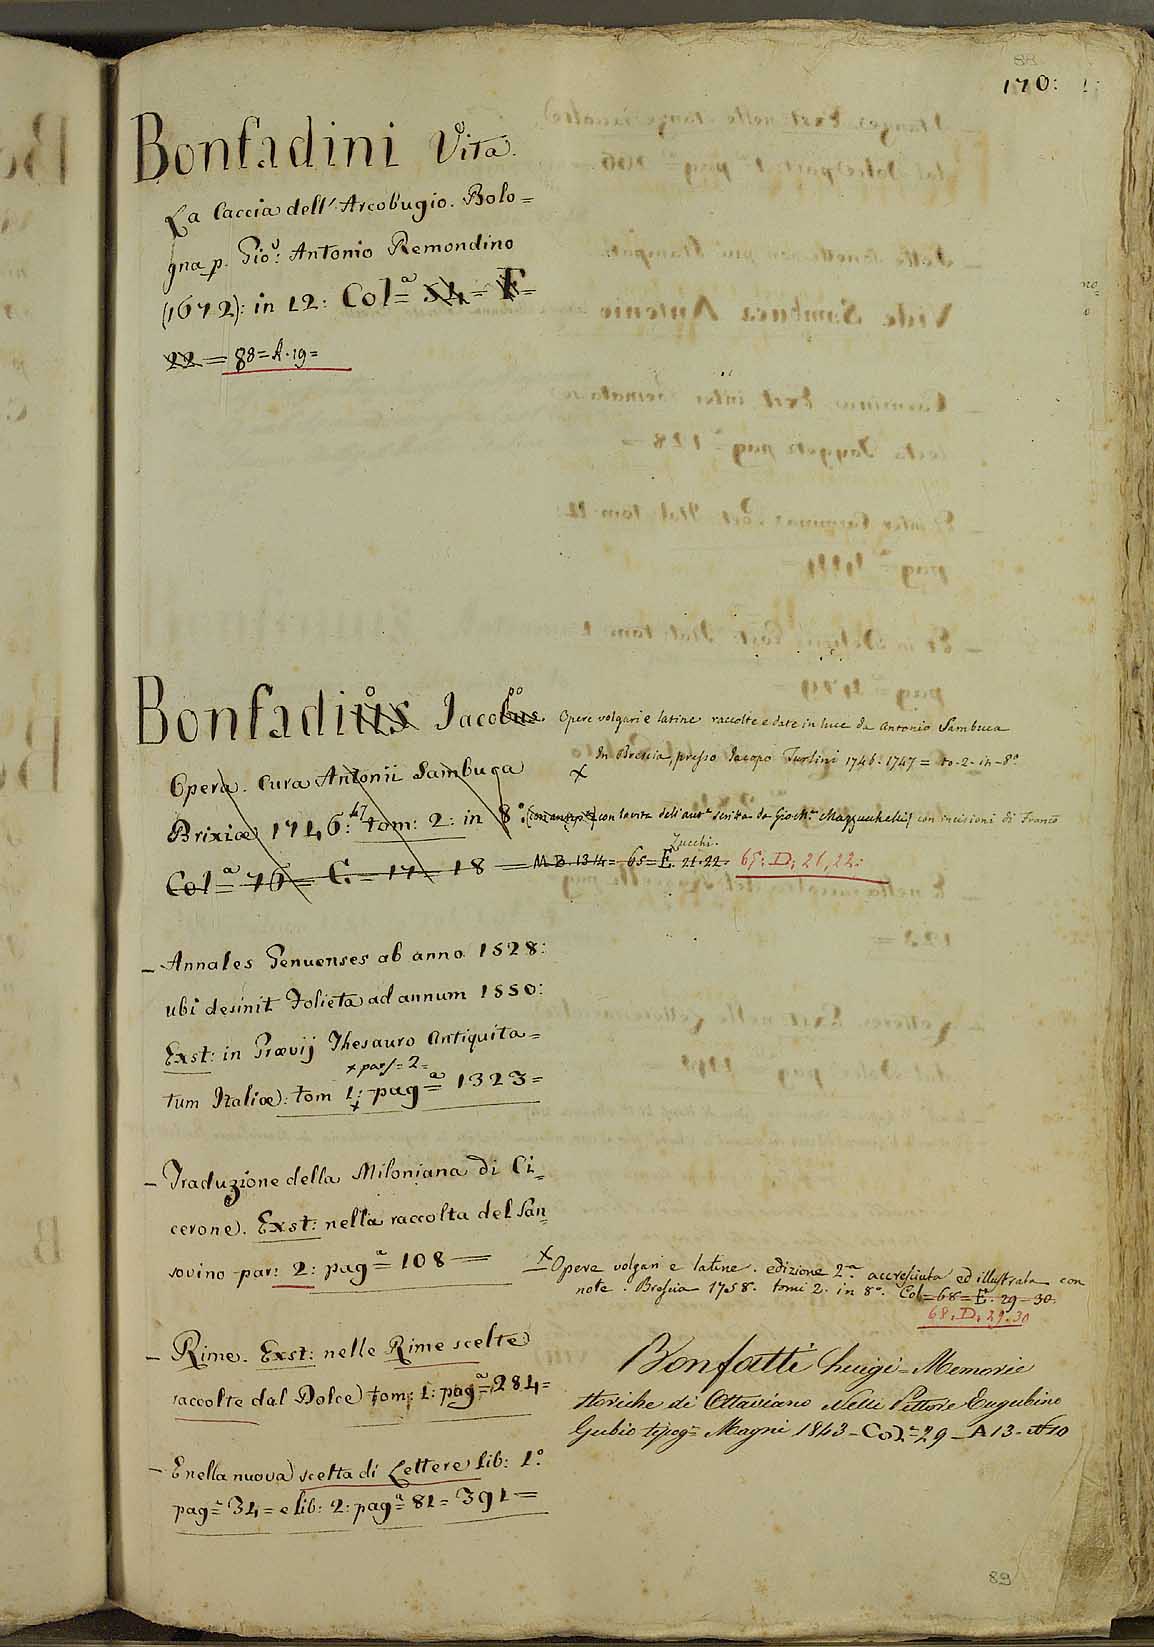 88
170:
Bonfadini Vita.
La Caccia dell' Arcobugio. Bolo=
gna p. Gio: Antonio Remondino
(1672): in 12: Col=a 34= F=
22 = 88=A.19=
Bonfadius Jacobus
Opere volgari e latine raccolte e date in luce da Antonio Sambuca
In Brescia, presso Jacopo Turlini 1746. 1747 = to. 2. in-8°
Opera. Cura Antonii Sambuca x
Brixiæ 1746: 47 tom: 2: in 8°: con la vita dell' aut.e scritta da Gioch. Mazzuchelli con incisioni di Franco
Zucchi.
Col=a 76= C.= 17= 18 = M.B. 13.14= 65= E. 21.22. 65: D: 21,22:
- Annales Genuenses ab anno 1528:
ubi desinit Folieta ad annum 1550:
Exst: in Grævij Thesauro Antiquita=
x pars= 2=
tum Italiæ: tom 1: pag=a 1323=
x
- Traduzione della Miloniana di Ci=
cerone. Exst: nella raccolta del San=
sovino par: 2: pag=a 108 =
x Opere volgari e latine. edizione 2.a accresciuta ed illustrata con
note. Brescia 1758. tomi 2. in 8°. Col=68= E. 29-30.
68. D. 29.30
- Rime. Exst: nelle Rime scelte
raccolte dal Dolce tom: 1: pag=a 284=
Bonfatti Luigi= Memorie
storiche di Ottaviano Nelli Pittore Eugubino
Gubio tipog= Magni 1843- Col=29 - A 13- N 10
- E nella nuova scelta di Lettere lib: 1°
pag=a 34= e lib: 2: pag=a 81= 391=
89